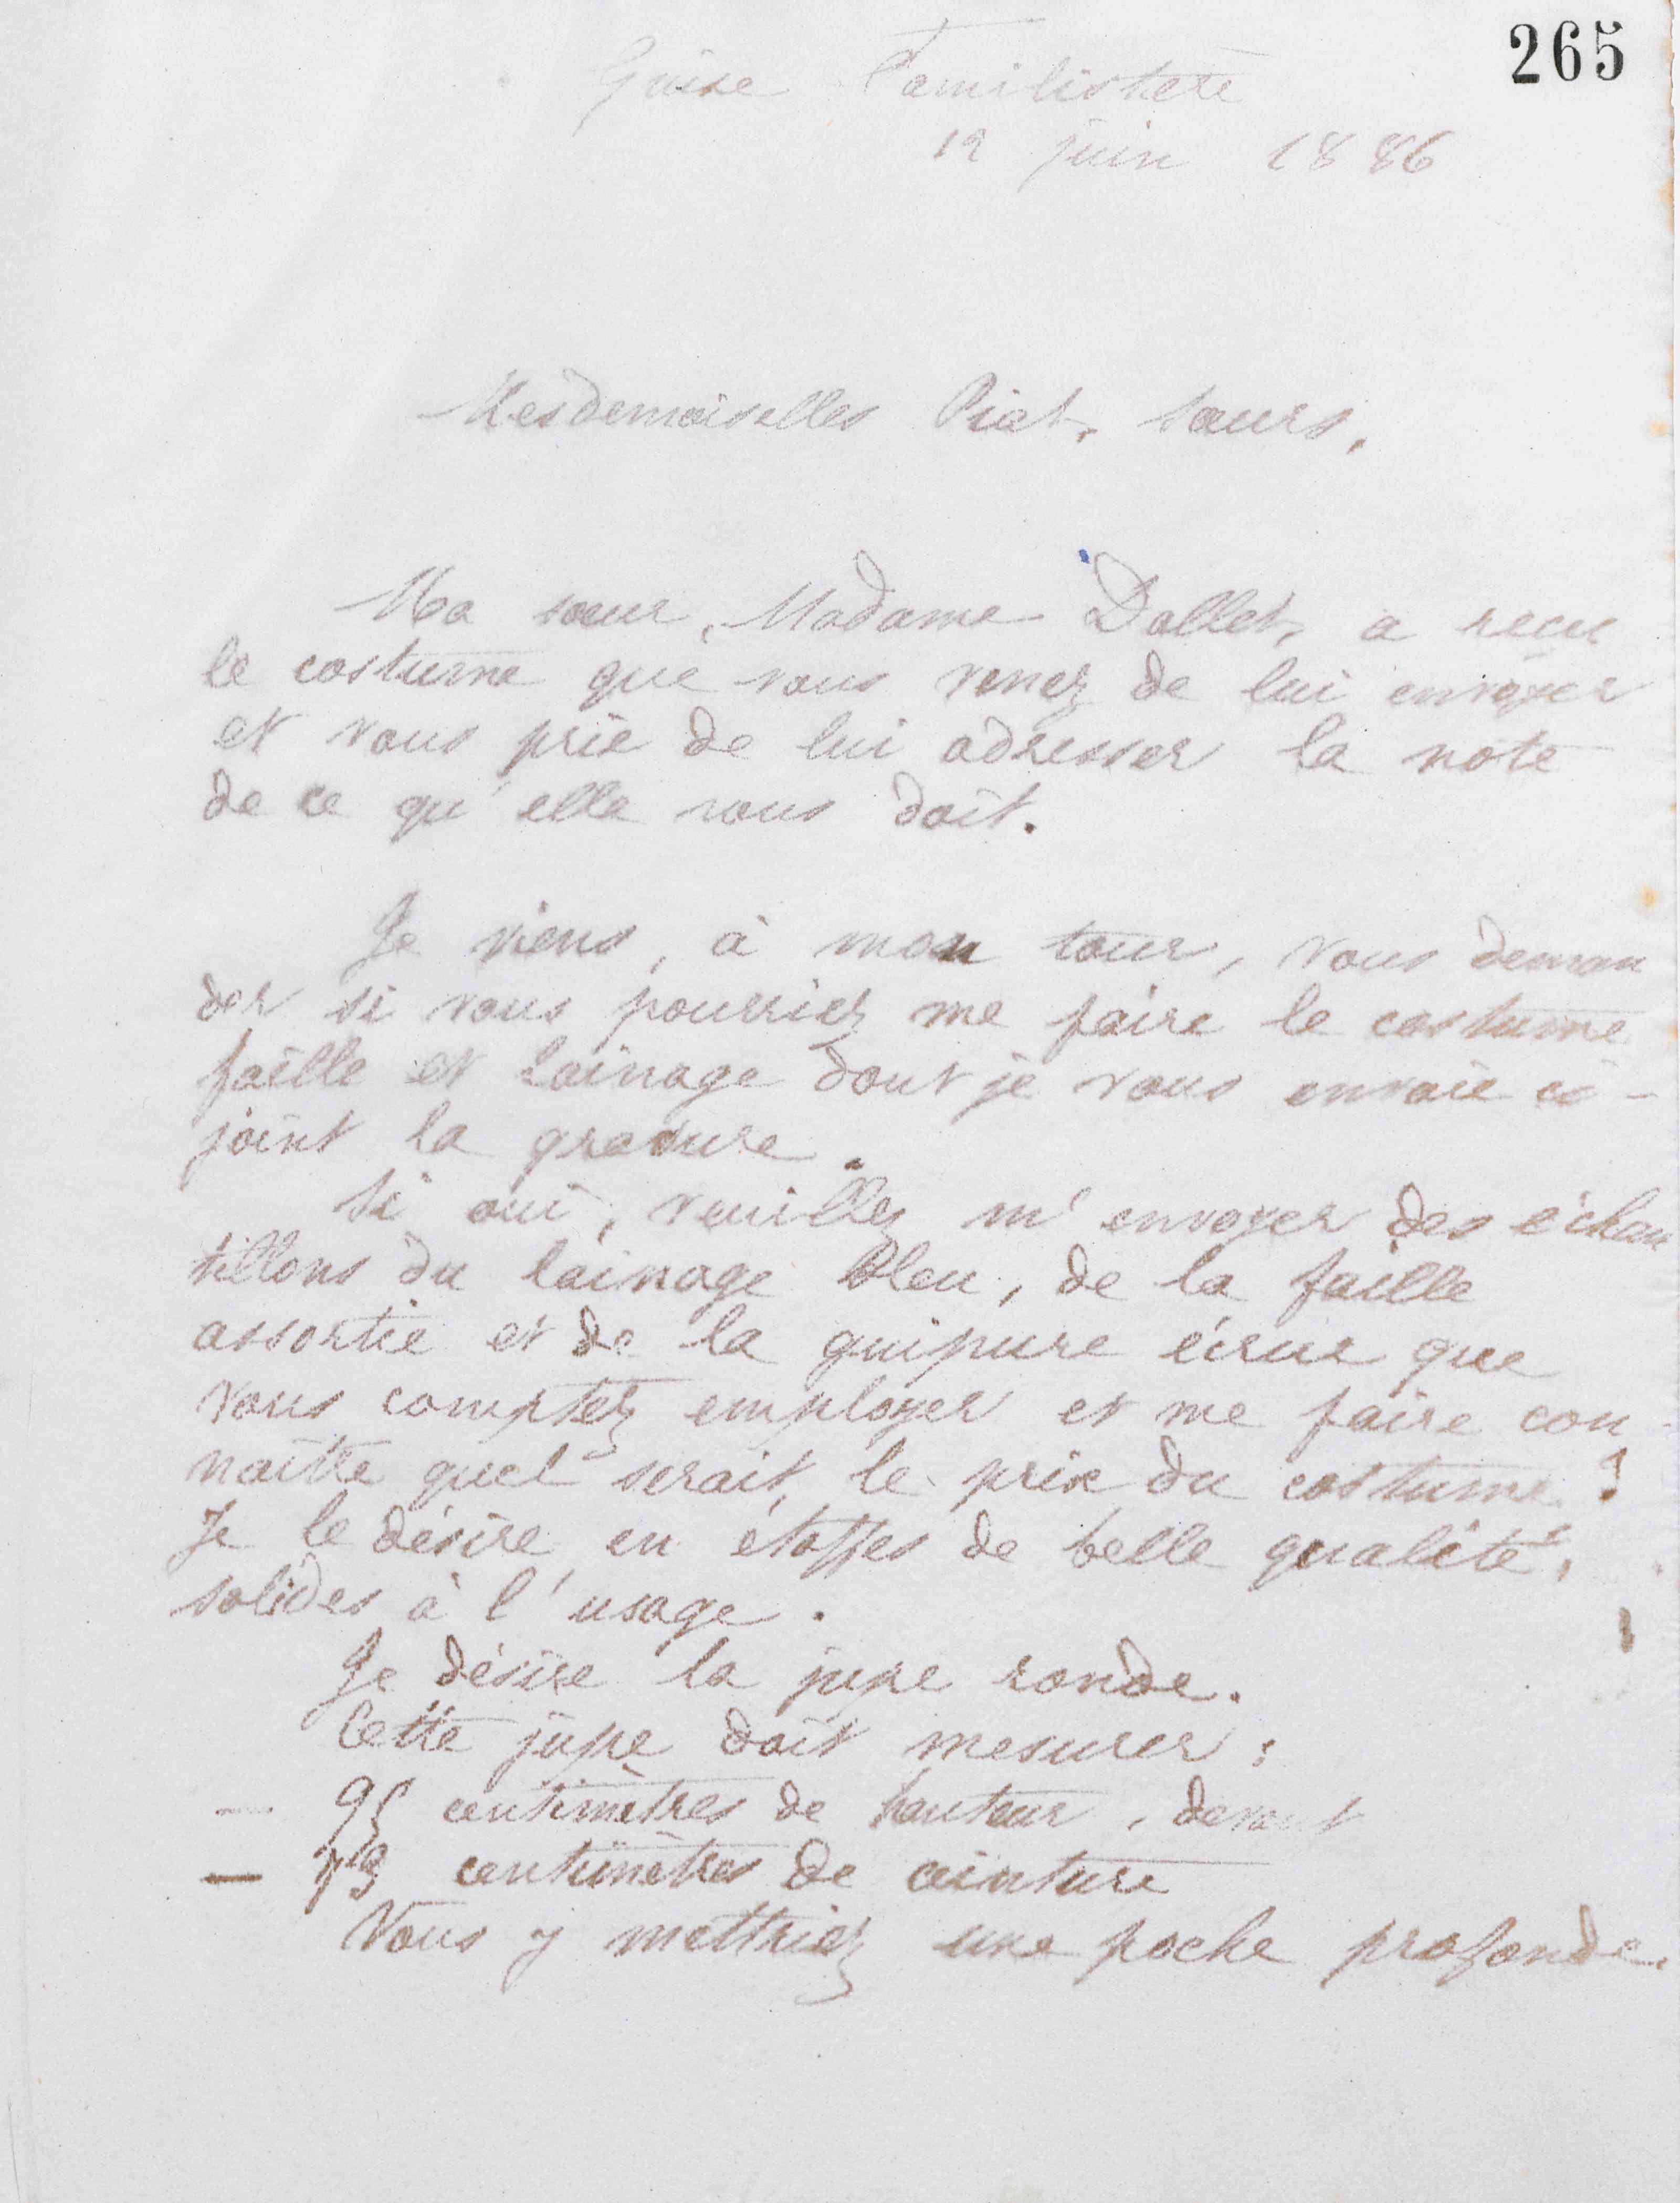 265
Guise Familistère
12 juin 1886
Mesdemoiselles Piat, sœurs,
Ma sœur, Madame Dallet, a reçu
le costume que vous venez de lui envoyer
et vous prie de lui adresser la note
de ce qu'elle vous doit.
Je viens, à mon tour, vous deman
der si vous pourriez me faire le costume
faille et lainage dont je vous envoie ci-
joint la gravure.
Si oui, veuillez m'envoyer des échan
tillons du lainage bleu, de la faille
assortie et de la guipure écrue que
vous comptez employer et me faire con-
naître quel serait le prix du costume?
Je le désire en étoffes de belle qualité,
solides à l'usage.
Je désire la jupe ronde.
Cette jupe doit mesurer:
— 95 centimètres de hauteur, devant
— 73 centimètres de ceinture
Vous y mettriez une poche profonde.